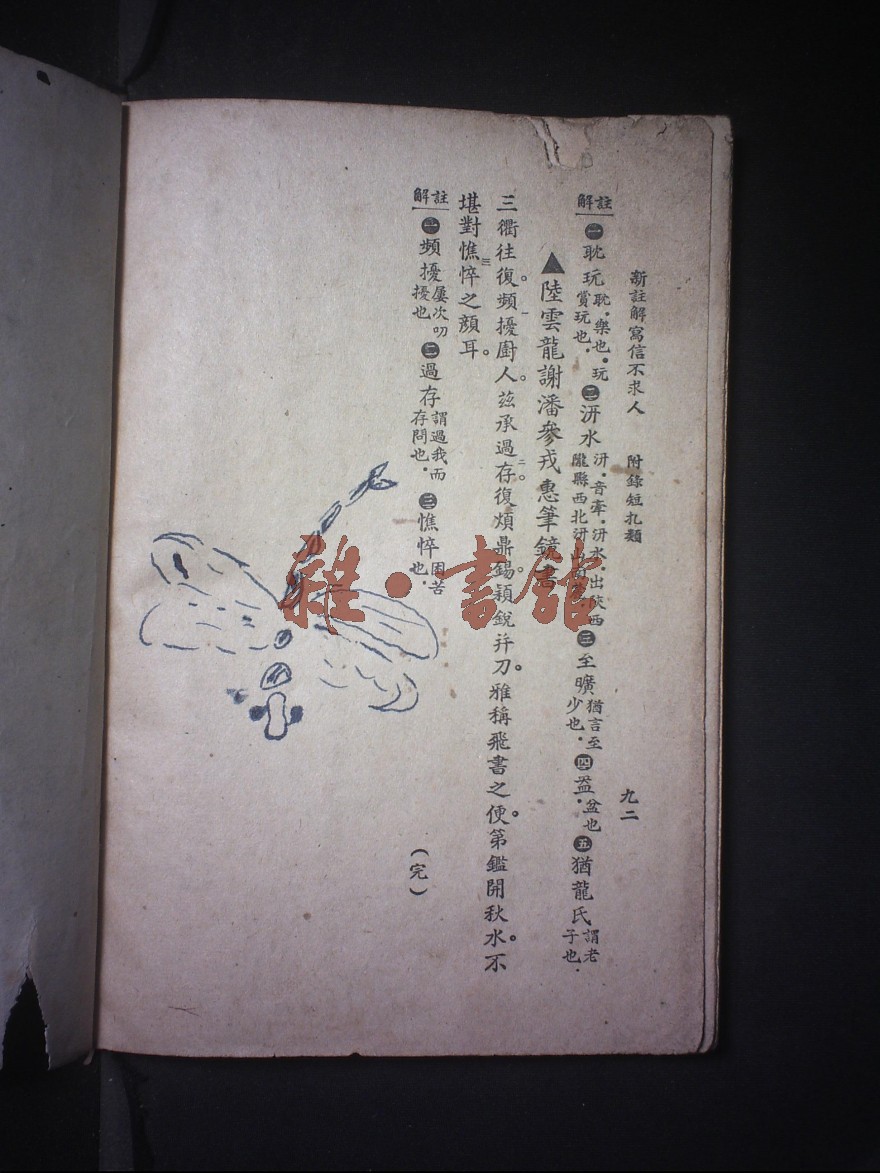 新註解寫信不求人　附錄短扎類　九二
註解 ㊀耽玩 耽。樂也。玩賞玩也。 ㊁汧水 汧。音牽。汧水。出陝西隴縣西北汧山 ㊂至曠 猶言至少也。 ㊃盈 盆也 ㊄猶龍氏 謂老子也。
▲陸雲龍謝潘參戎惠筆鏡書
三衢往復。頻擾廚人。茲承過存。復煩鼎錫。穎銳并刀。雅稱飛書之便。第鑑開秋水。不
堪對憔悴之顏耳。
註解 ㊀頻擾 屢次叨擾也 ㊁過存 謂過我而存問也。 ㊂憔悴 困苦也。
（完）
雜・書館